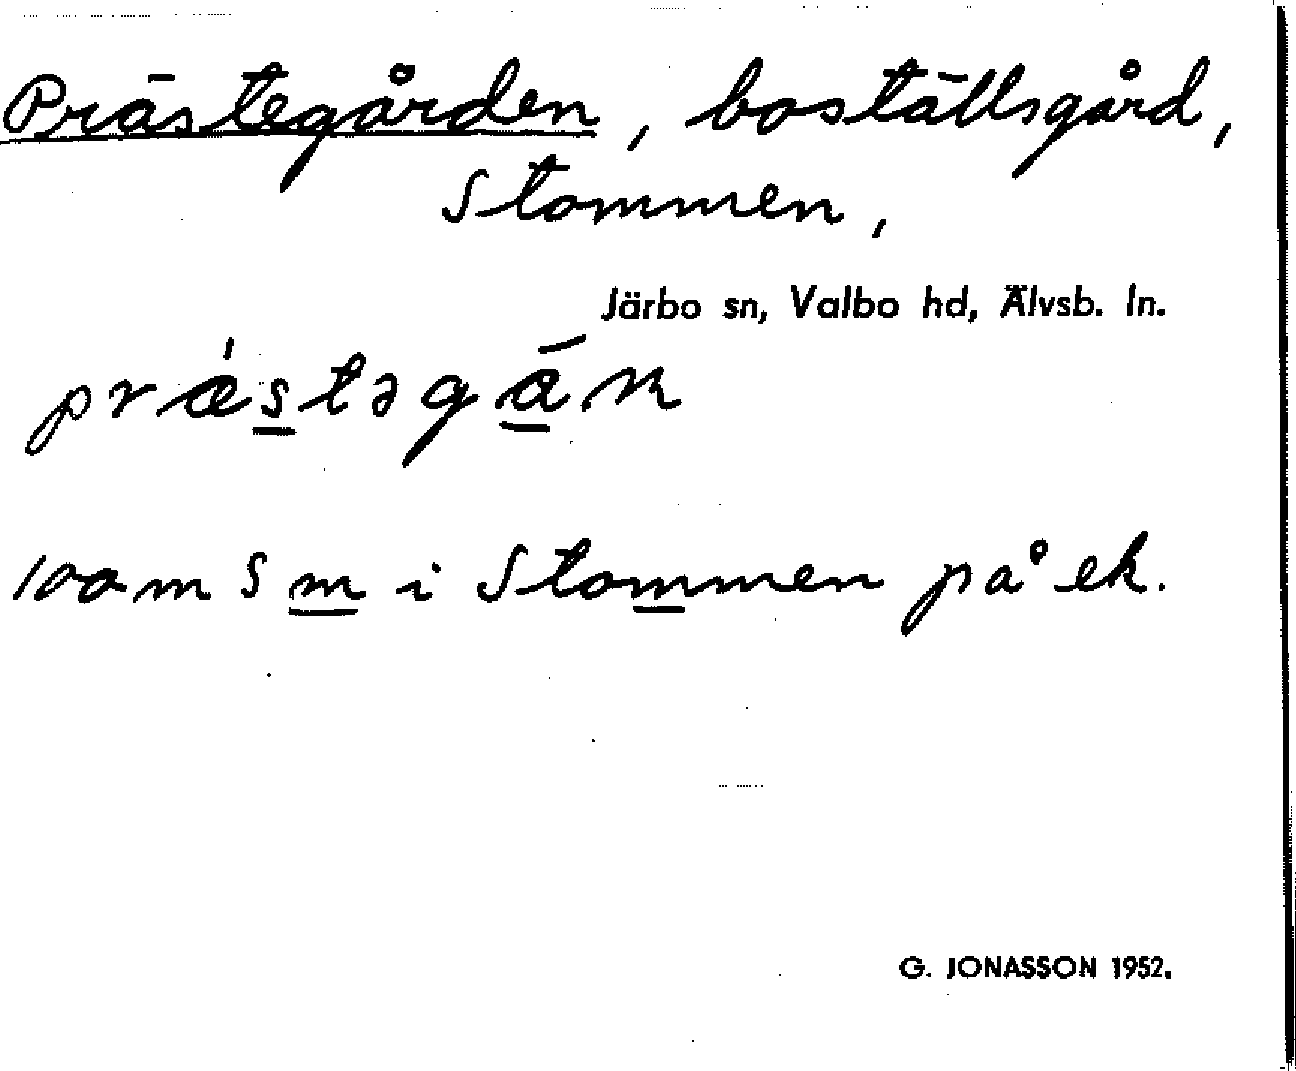 Prästegården, boställsgård,
Stommen,
Järbo sn, Valbo hd, Älvsb. ln.
præ̀stəgán
100 m S m i Stommen på ek.
G. JONASSON 1952.